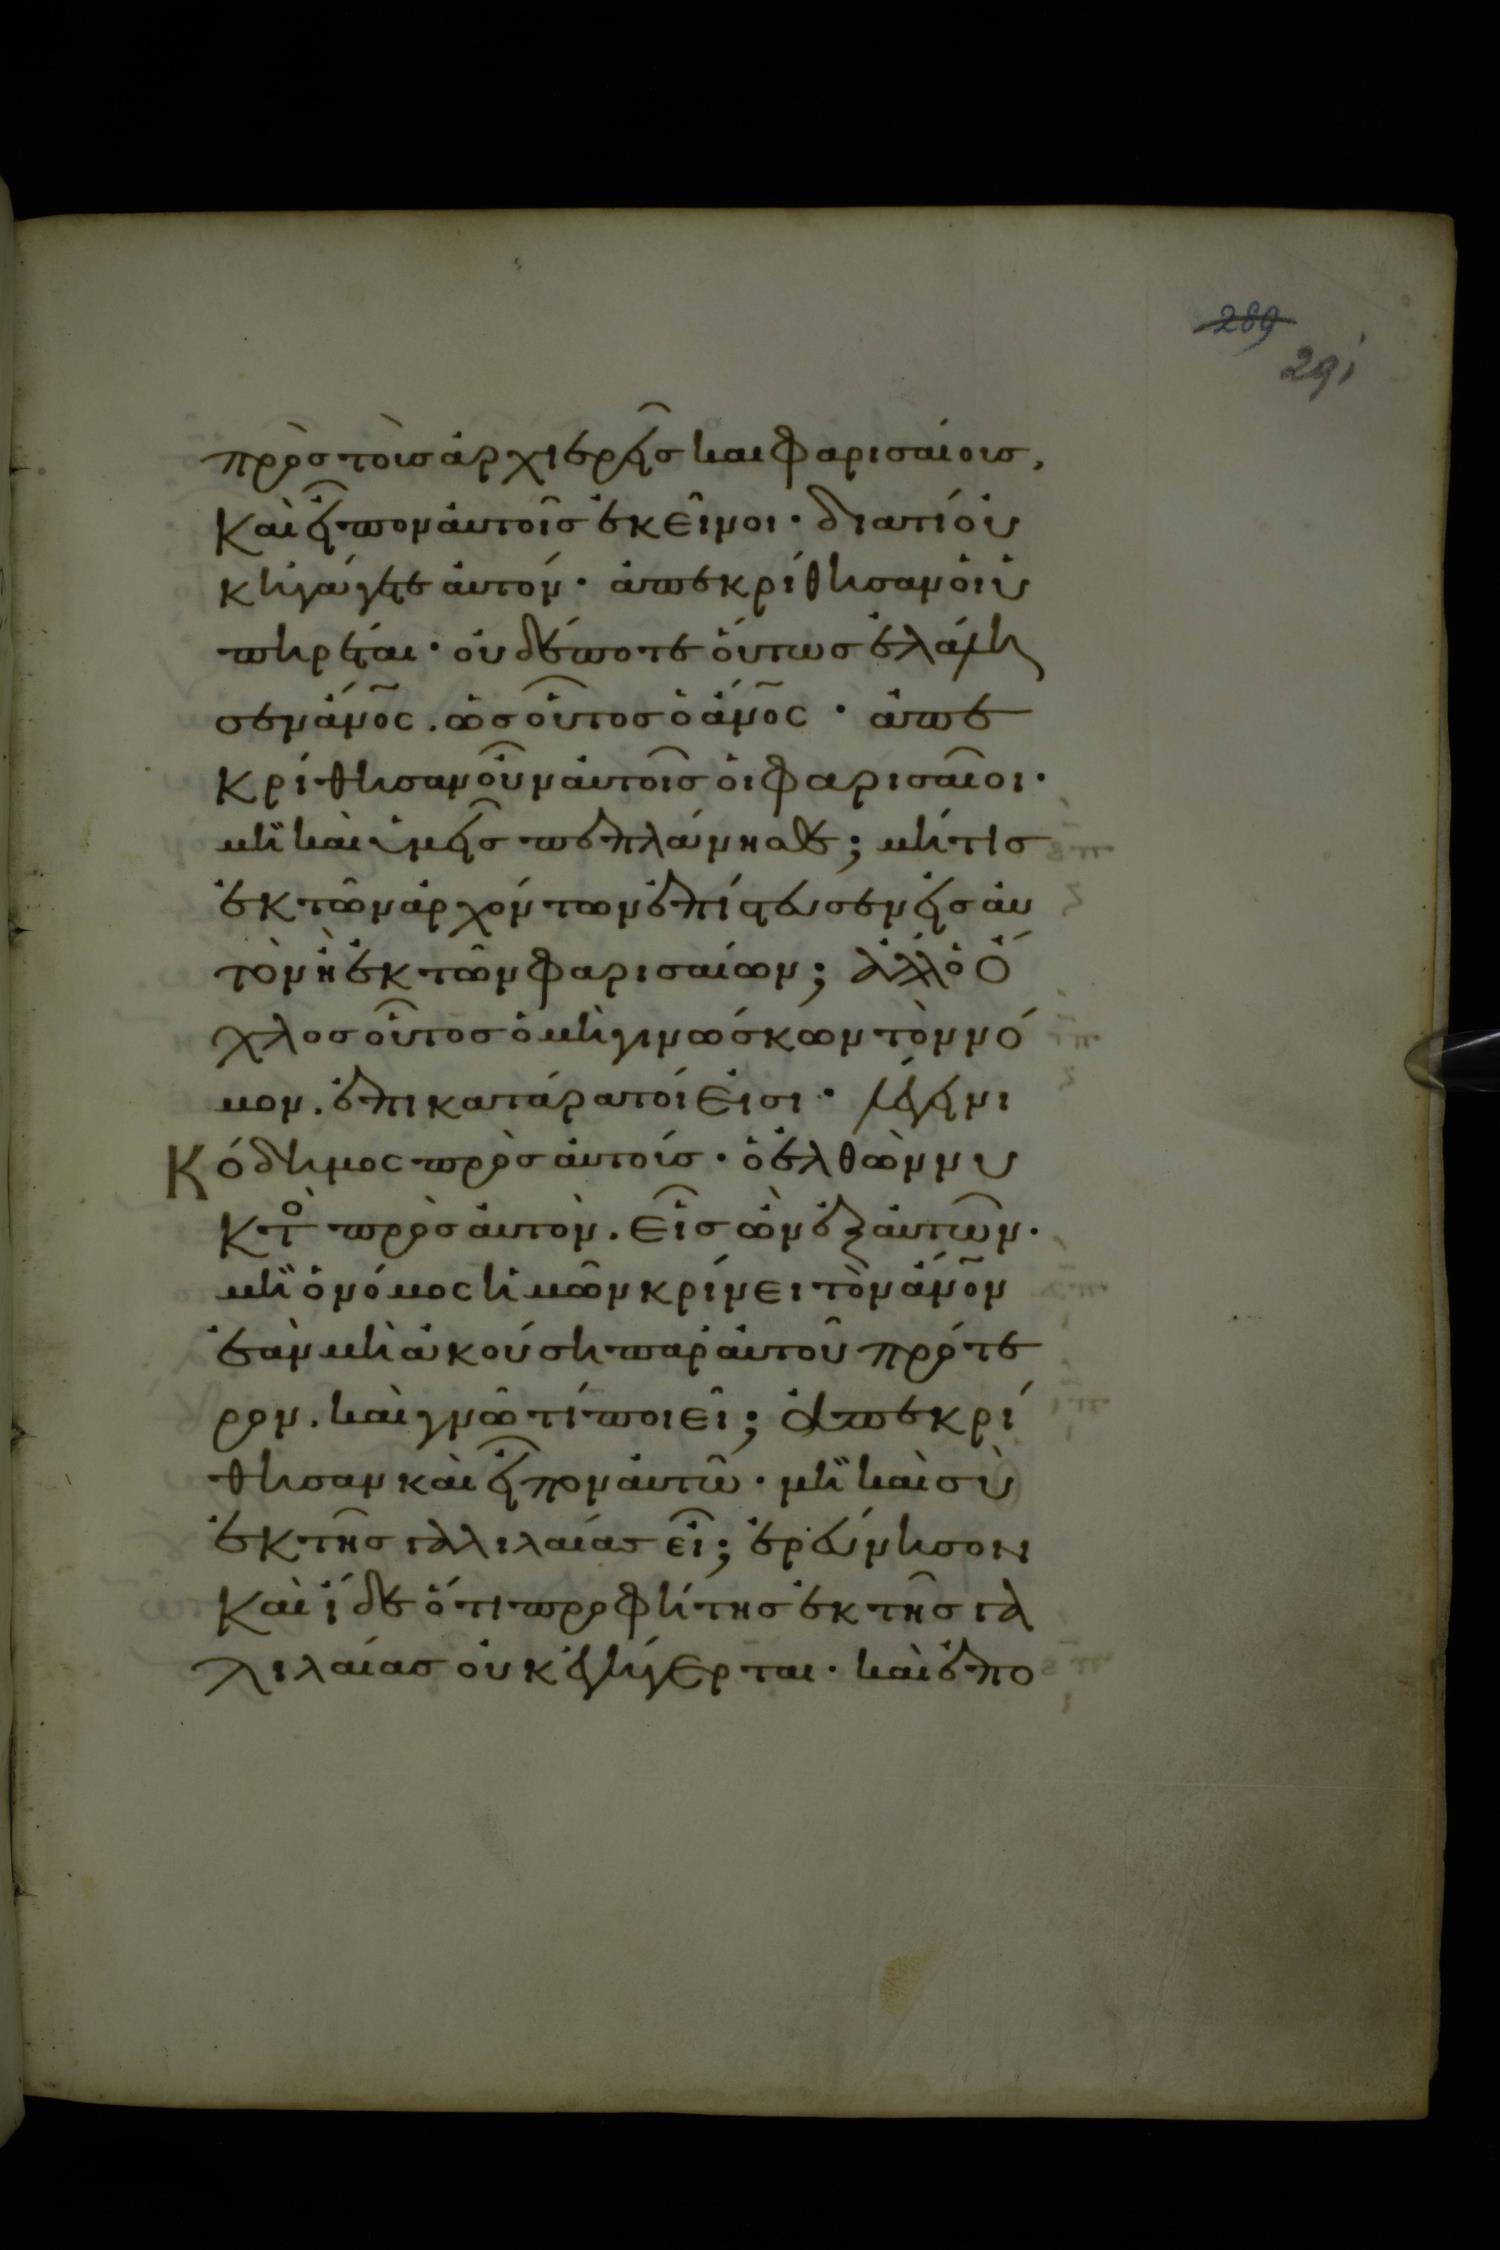 289
291
πρὸς τοὺς ἀρχιερεῖς καὶ φαρισαίους,
Καὶ εἶπον αὐτοῖς ἐκεῖνοι· διατί οὐ
κ ἠγάγετε αὐτόν· ἀπεκρίθησαν οἱ ὑ
πηρέται· οὐδέποτε οὕτως ἐλάλη
σεν ἄνος. ὡς οὗτος ὁ ἄνος · ἀπε
κρίθησαν οὖν αὐτοῖς οἱ φαρισαῖοι·
μὴ καὶ ὑμεῖς πεπλάνησθε; μή τις
ἐκ τῶν ἀρχόντων ἐπίστευσεν εἰς αὐ
τὸν ἢ ἐκ τῶν φαρισαίων; ἀλλ ὁ ὄ
χλος οὗτος ὁ μὴ γινώσκων τὸν νό
μον. ἐπικατάρατοί εἰσι· λέγει νι
Κόδημος πρὸς αὐτούς· ὁ ἐλθὼν νυ
κτὸ πρὸς αὐτὸν. εἷς ὢν ἐξ αὐτῶν·
μὴ ὁ νόμος ἡμῶν κρίνει τὸν ἄνον
ἐὰν μὴ ἀκούση παρ αὐτοῦ πρότε
ρον. καὶ γνῶ τί ποιεῖ; Ἀπεκρί
θησαν καὶ εἶπον αὐτῶ· μὴ καὶ σὺ
ἐκ τῆς γαλιλαίας εἶ; ἐρεύνησον
Καὶ ἴδε ὅτι προφήτης ἐκ τῆς γα
λιλαίας οὐκ ἐγήγερται· καὶ ἐπο